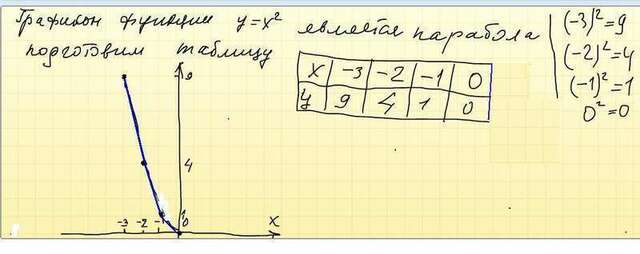 Графиком функции y=x² является парабола
подготовим таблицу
x -3 -2 -1 0
y 9 4 1 0
(-3)²=9
(-2)²=4
(-1)²=1
0²=0
9
4
1
-3 -2 -1 0
x